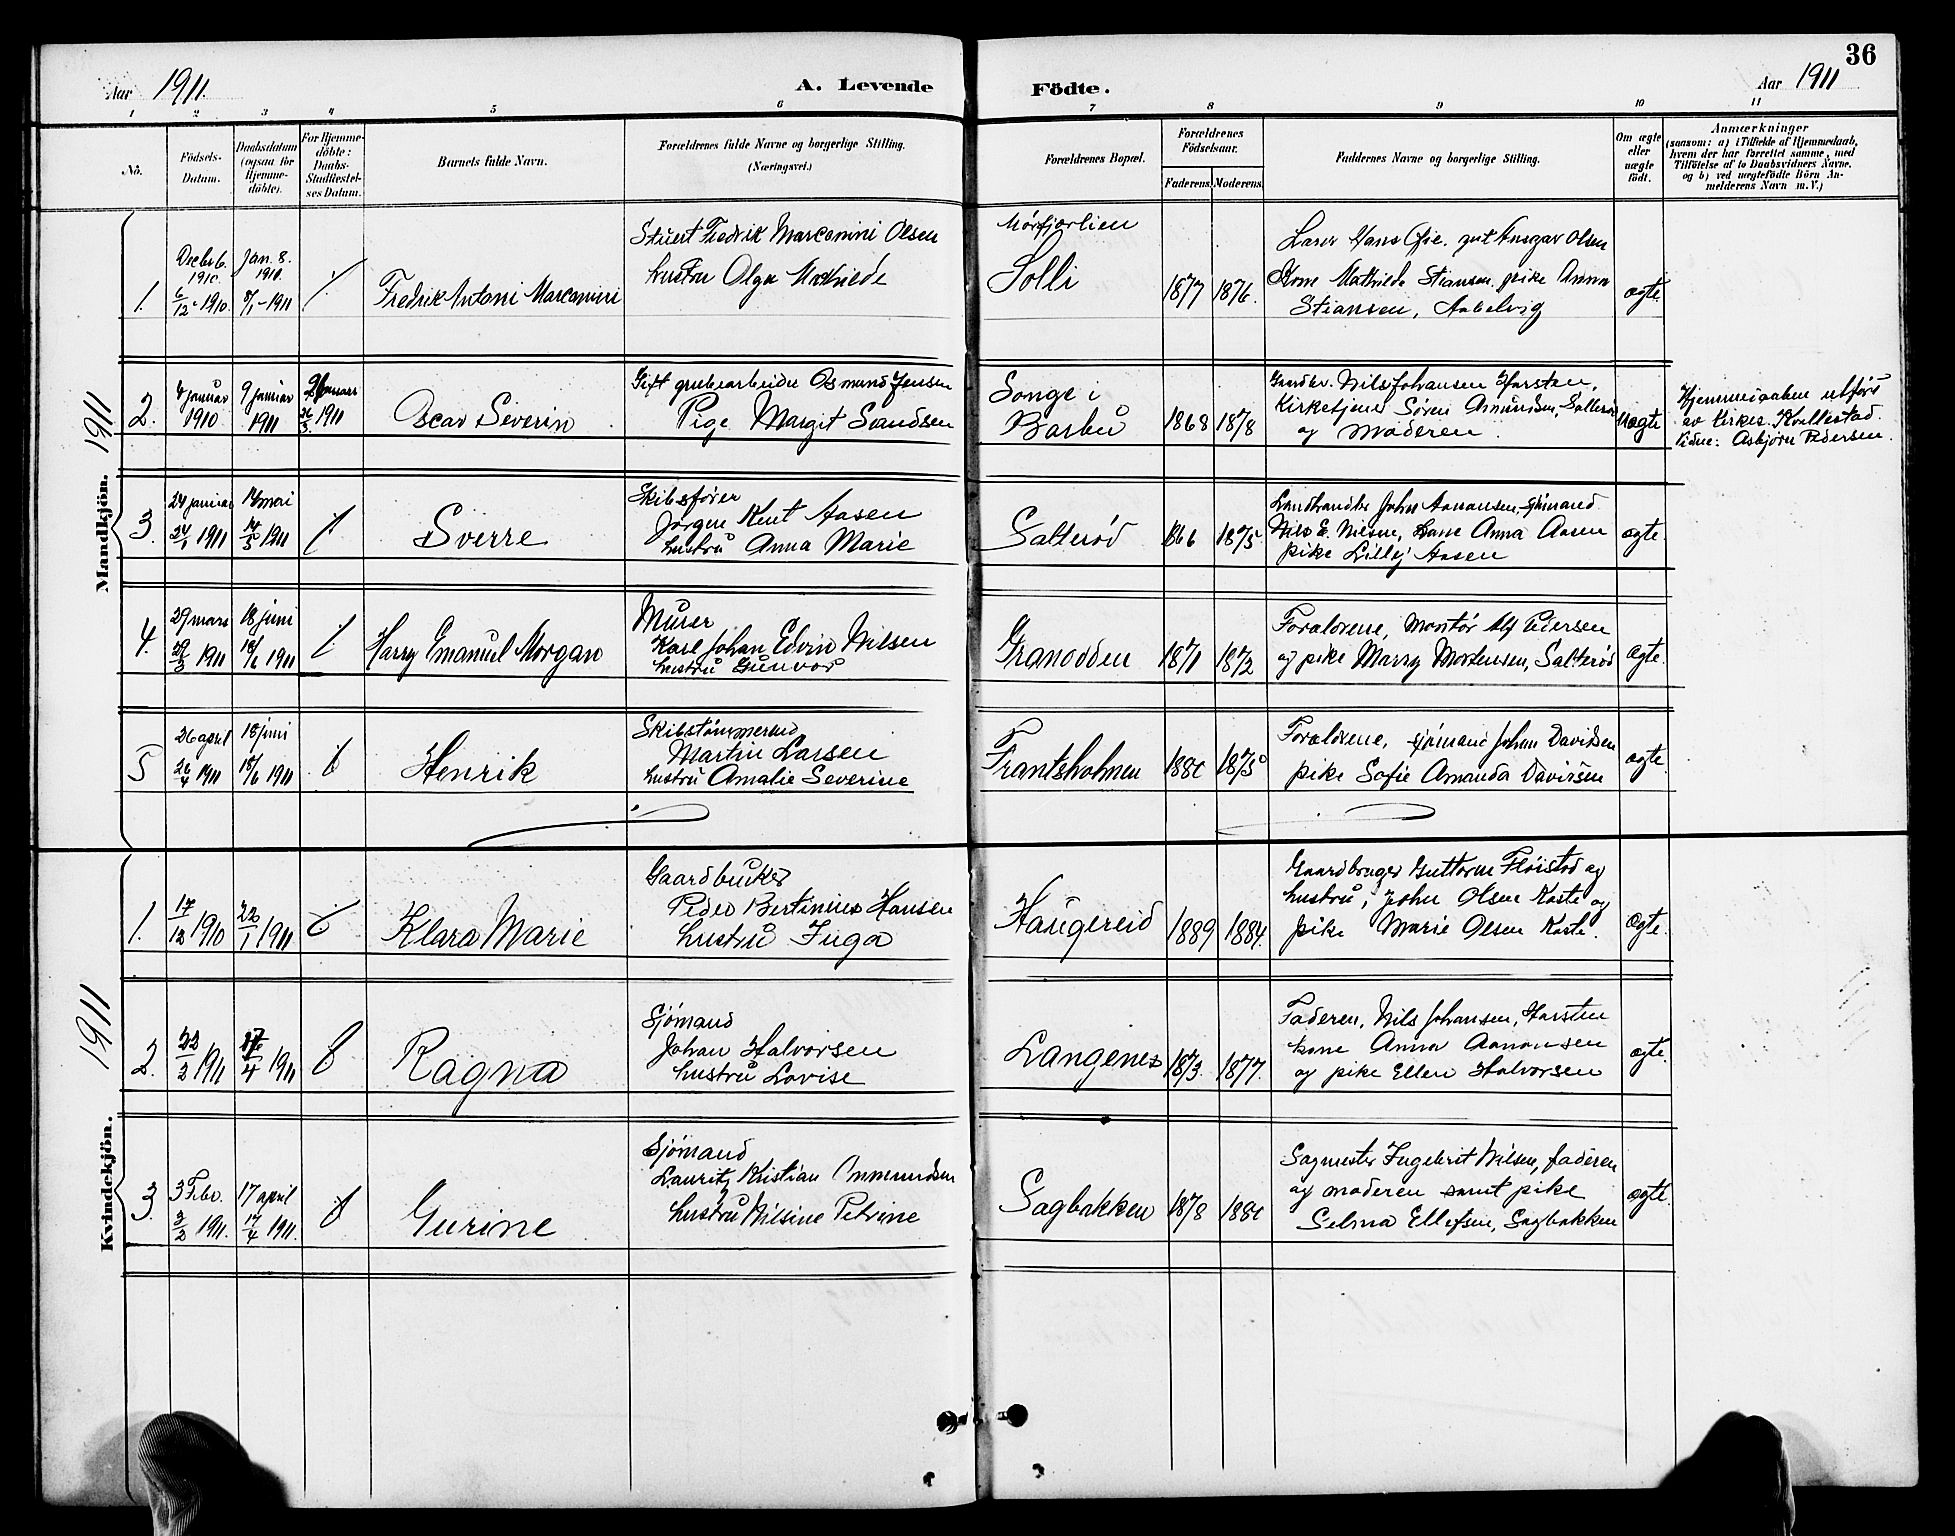 36
Aar 1911. A. Levende Födte. Aar 1911
1 2 3 4 5 6 7 8 9 10 11
No.
Födsels-Datum.
Daabsdatum (ogsaa for Hjemme-döbte).
For Hjemme-döbte: Daabs-Stadfæstel-ses Datum.
Barnets fulde Navn.
Forældrenes fulde Navne og borgerlige Stilling. (Næringsvei.)
Forældrenes Bopæl.
Forældrenes Födselsaar.
Faderens. Moderens.
Faddernes Navne og borgerlige Stilling.
Om ægte eller uægte födt.
Anmærkninger
(saasom: a) i Tilfælde af Hjemmedaab,
hvem der har forrettet samme, med
Tilföielse af to Daabsvidners Navne,
og b) ved uægtefödte Börn An-
melderens Navn m. V.)
1911
Mandkjön.
1. Decbr 6. 1910. 6/12-1910. Jan. 8. 1911. 8/1-1911
Fredrik Antoni Marconini
Stuert Fredrik Marconini Olsen
hustru Olga Mathilde
Solli
1877 1876.
Hans gut Ansgar Olsen
Kone Mathilde Stiansen, pike Anna
Stiansen,
ægte.
2. 4 januar 1910 9 januar 1911 1911
Oscar Severin
Gift grubearbeider Osmund Jensen
Pige Margit Sandsen
Songe i
Barbu
1868 1878
Gaardbr. Nils Johansen Harsten,
Kirketjener Sören Amundsen, Salterød
og Moderen.
uægte
Hjemmedaaben utført
av Kirkes.
Vidne: Asbjørn Pedersen.
3. 24 januar 24/1 1911 14 mai 14/5 1911
Sverre
Skibsfører
Jørgen Knut Aasen
hustru Anna Marie
Salterød
1866 1875
Landhandler John Aanonsen, sjömand
Nils E. Nilsen, Kone Anna Aasen
pike Lilly Aasen
ægte.
4. 29 mars 29/3 1911 18 juni 18/6 1911
Harry Emanuel Morgan
Murer
Karl Johan Edvin Nilsen
hustru Gunvor
Granodden
1871 1872
Forældrene, Montør Alf Pedersen
og pike Marry Mortensen, Salterød
ægte.
5 26 april 26/4 1911 18 juni 18/6 1911
Henrik
Skibstømmermd
Martin Larsen
hustru Amalie Severine
Frantsholmen
1880 1875
Forældrene, sjömand Johan Davidsen
pike Sofie Amanda Davidsen
ægte.
1911
Kvindekjön.
1. 17/12 1910 22/1 1911
Klara Marie
Gaardbruker
Peder Bertinius Hansen
hustru Inga
Haugereid
1889 1884.
Gaardbruger Guttorm Fløistad og
hustru, John Olsen Kaste og
pike Marie Olsen Kaste.
ægte.
2. 22/2 1911 17/4 1911
Ragna
Sjömand
Johan Halvorsen
hustru Lovise
Langenes
1873. 1877.
Faderen, Nils Johansen, Harsten
kone Anna Aanonsen
og pike Ellen Halvorsen
ægte.
3. 3 Febr. 3/2 1911. 17 april 17/4 1911.
Gurine
Sjömand
Lauritz Kristian Ommundsen
hustru Nilsine Petrine
Sagbakken
1878 1880
Sagmester Ingebret Nilsen, faderen
og moderen samt pike
Selma Ellefsen, Sagbakken
ægte.